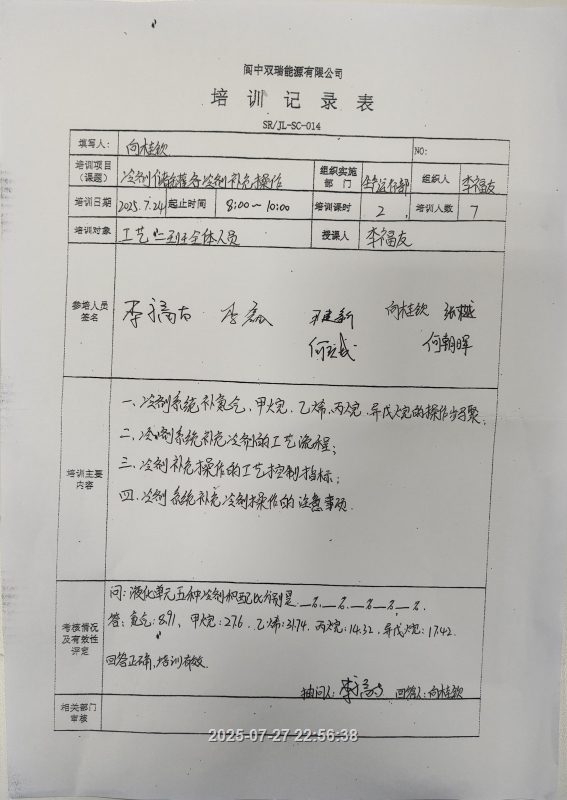 阆中双瑞能源有限公司
培训记录表
SR/JL-SC-014
填写人: 向桂钦 NO:
培训项目(课题) 冷剂储罐各冷剂补充操作 组织实施部门 生产运行部 组织人 李福友
培训日期 2025.7.24 起止时间 8:00~10:00 培训课时 2 培训人数 7
培训对象 工艺二班全体人员 授课人 李福友
参培人员签名 李福友 李磊 向桂钦 张樾
何朝晖
培训主要内容
一、冷剂系统补氮气、甲烷、乙烯、丙烷、异戊烷的操作步骤;
二、冷剂系统补充冷剂的工艺流程;
三、冷剂补充操作的工艺控制指标;
四、冷剂系统补充冷剂操作的注意事项.
考核情况及有效性评定
问:液化单元五种冷剂相配比分别是__%、__%、__%、__%、__%.
答:氮气:8.91、甲烷:27.6、乙烯:31.74、丙烷:14.32、异戊烷:17.42.
回答正确,培训有效.
抽问人:李福友 回答人:向桂钦
相关部门审核
2025-07-27 22:56:38